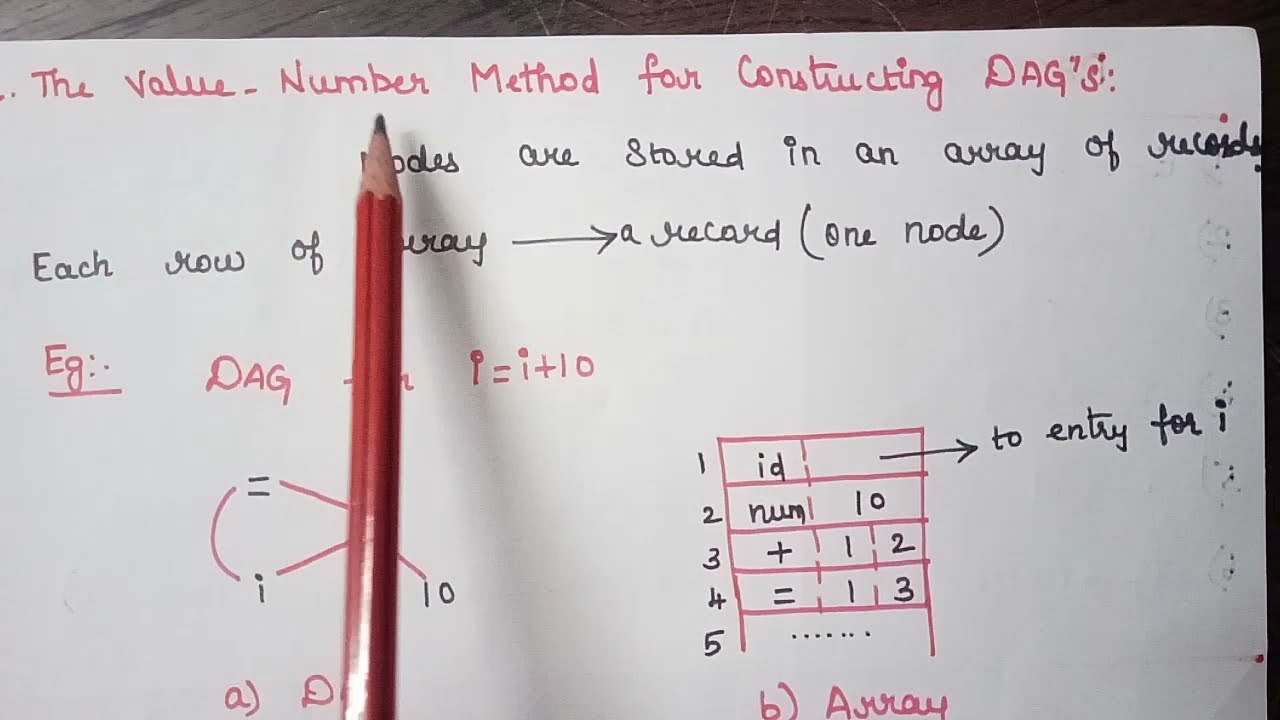 . The Value-Number Method for Constructing DAG's:
are stored in an array of records
Each row of → a record (one node)
Eg:- DAG i=i+10
=
i 10
1 id → to entry for i
2 num 10
3 + 1 2
4 = 1 3
5 .......
a) b) Array